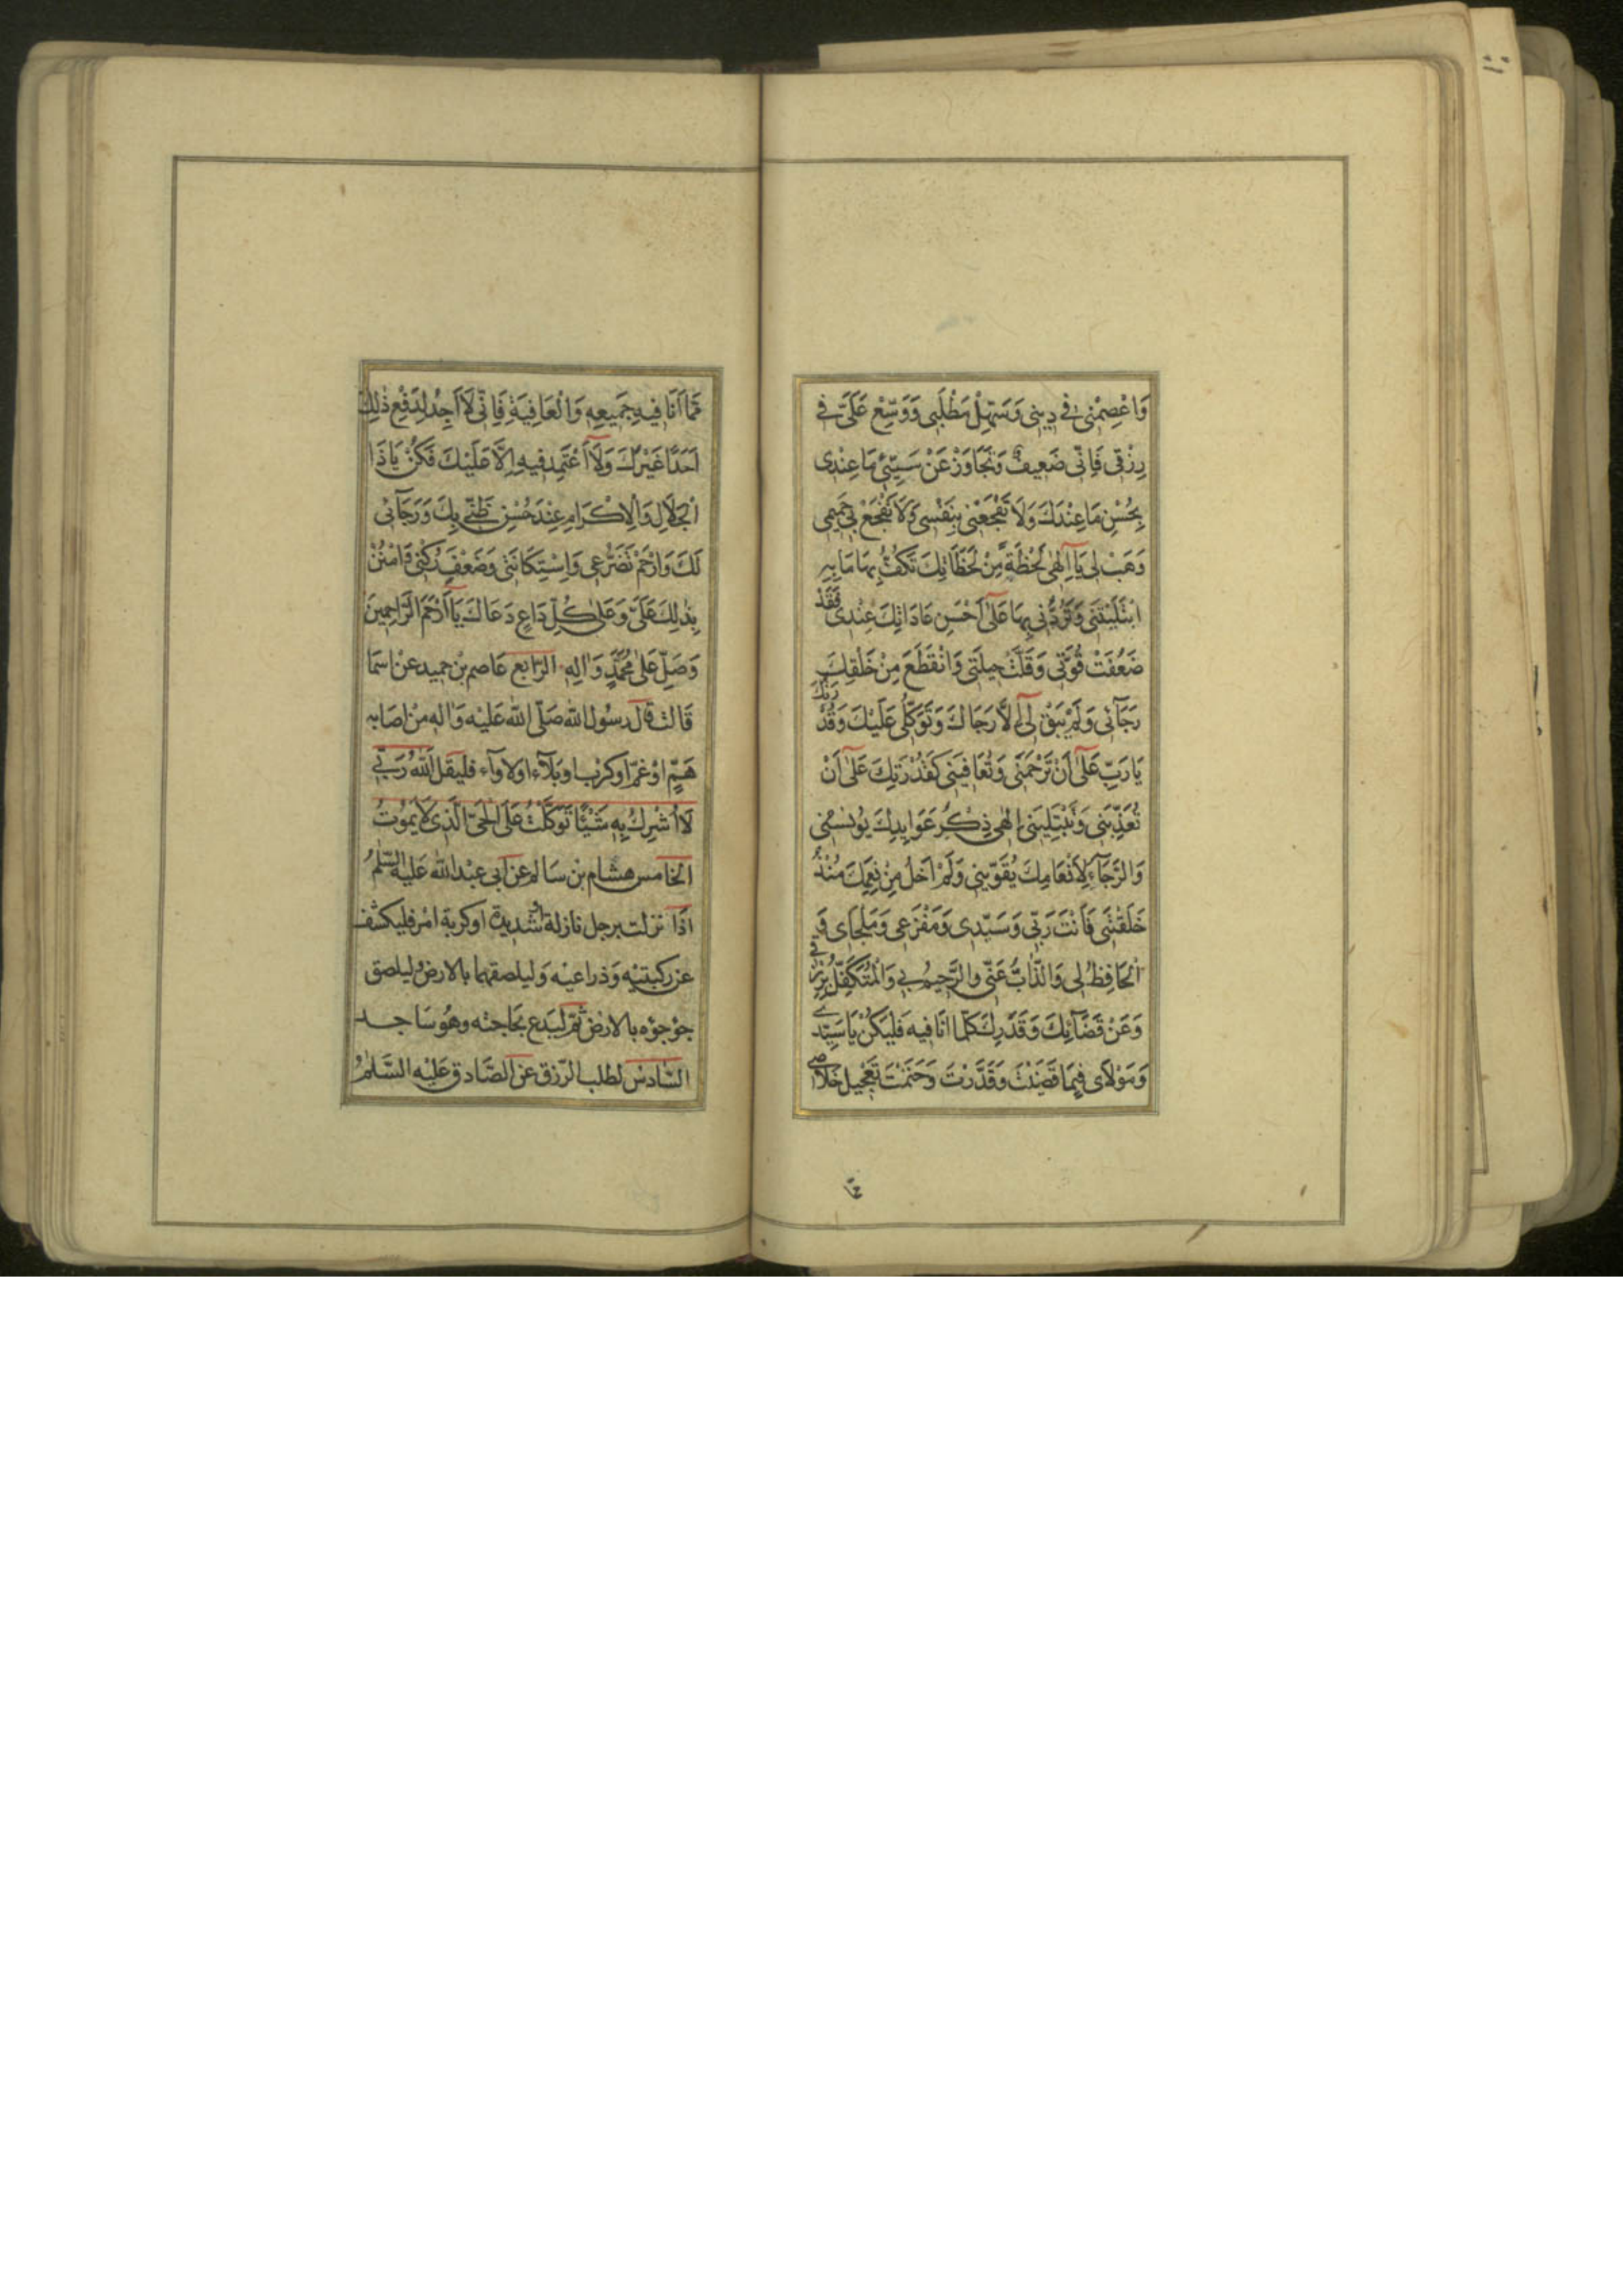 وَاعْصِمْنِي فِي دِينِي وَسَهِّلْ مَطْلَبِي وَوَسِّعْ عَلَيَّ فِي
رِزْقِي فَاِنِّي ضَعِيفٌ وَتَجَاوَزْ عَنْ سَيِّئِ مَا عِنْدِي
بِحُسْنِ مَا عِنْدَكَ وَلَا تَفْجَعْنِي بِنَفْسِي وَلَا تَفْجَعْ بِي حَمِيمِي
وَهَبْ لِي يَا اِلٰهِي لَحْظَةً مِنْ لَحَظَاتِكَ تَكْفُّ بِهَا مَا بِهِ
ابْتَلَيْتَنِي وَتَرُدُّنِي بِهَا عَلٰى اَحْسَنِ عَادَاتِكَ عِنْدِي فَقَدْ
ضَعُفَتْ قُوَّتِي وَقَلَّتْ حِيلَتِي وَانْقَطَعَ مِنْ خَلْقِكَ
رَجَآئِي وَلَمْ يَبْقَ لِي اِلَّا رَجَاكَ وَتَوَكُّلِي عَلَيْكَ وَقُدْرَتُكَ
يَا رَبِّ عَلٰى اَنْ تَرْحَمَنِي وَتُعَافِيَنِي كَقُدْرَتِكَ عَلٰى اَنْ
تُعَذِّبَنِي وَتَبْتَلِيَنِي اِلٰهِي ذِكْرُ عَوَايِدِكَ يُونِسُنِي
وَالرَّجَآءُ لِاِنْعَامِكَ يُقَوِّينِي وَلَمْ اَخْلُ مِنْ نِعَمِكَ مُنْذُ
خَلَقْتَنِي فَاَنْتَ رَبِّي وَسَيِّدِي وَمَفْزَعِي وَمَلْجَاي وَ
الْحَافِظُ لِي وَالذَّابُّ عَنِّي وَالرَّحِيمُ بِي وَالْمُتَكَفِّلُ بِرِزْقِي
وَعَنْ قَضَآئِكَ وَقَدَرِكَ كُلَّمَا اَنَا فِيهِ فَلْيَكُنْ يَا سَيِّدِي
وَمَوْلَاي فِيمَا قَضَيْتَ وَقَدَّرْتَ وَحَتَمْتَ تَعْجِيلُ خَلَاصِي
مِمَّا اَنَا فِيهِ جَمِيعِهِ وَالْعَافِيَةِ فَاِنِّي لَا اَجِدُ لِدَفْعِ ذٰلِكَ
اَحَدًا غَيْرَكَ وَلَا اَعْتَمِدُ فِيهِ اِلَّا عَلَيْكَ فَكُنْ يَا ذَا
الْجَلَالِ وَالْاِكْرَامِ عِنْدَ حُسْنِ ظَنِّي بِكَ وَرَجَآئِي
لَكَ وَارْحَمْ تَضَرُّعِي وَاسْتِكَانَتِي وَضَعْفَ رُكْنِي وَامْنُنْ
بِذٰلِكَ عَلَيَّ وَعَلٰى كُلِّ دَاعٍ دَعَاكَ يَا اَرْحَمَ الرَّاحِمِينَ
وَصَلِّ عَلٰى مُحَمَّدٍ وَاٰلِهِ الرّابع عاصم بن حميد عن اسما
قالت قال رسول الله صلّى الله عليه واله من اصابه
همّ او غمّ او كرب او بلآء او لاوآء فليقل اَللّٰهُ رَبِّي
لَا اُشْرِكُ بِهِ شَيْئًا تَوَكَّلْتُ عَلَى الْحَيِّ الَّذِي لَا يَمُوتُ
الخامس هشام بن سالم عن ابى عبد الله عليه السّلم
اذا نزلت برجل نازلة او شديدة او كربة امر فليكشف
عن ركبتيه وذراعيه وليلصقهما بالارض وليلصق
جؤجؤه بالارض ثمّ ليدع بحاجته وهو ساجد
السّادس لطلب الرّزق عن الصّادق عليه السّلم